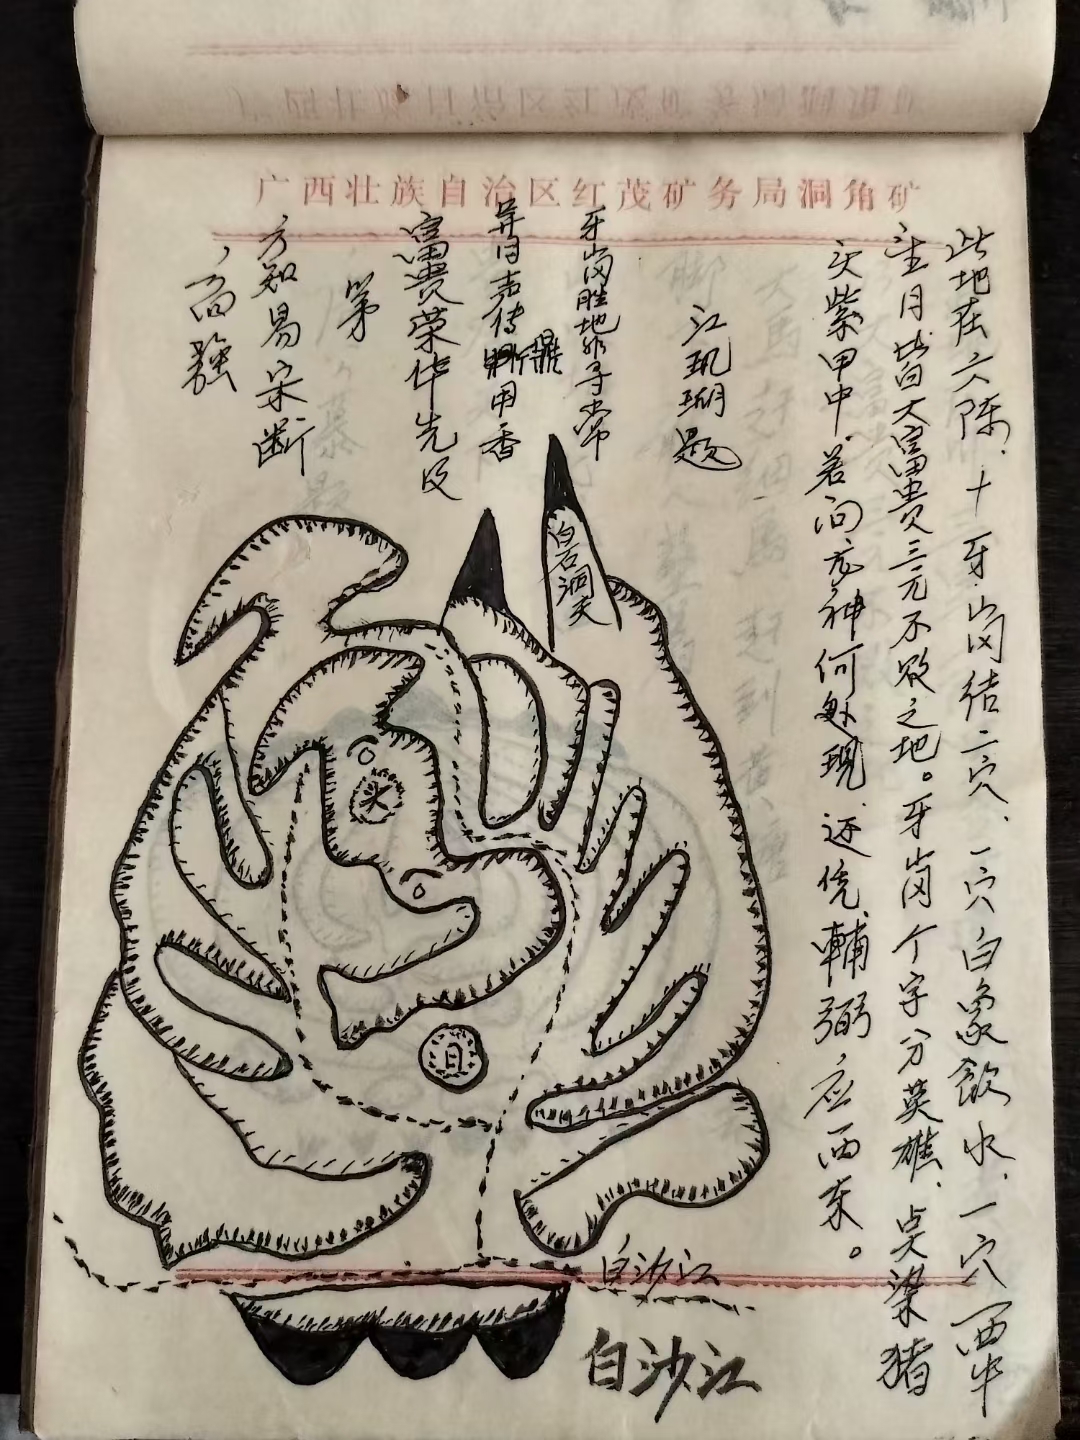 广西壮族自治区红茂矿务局洞角矿
此地在六陈、十牙岗结二穴、一穴白象飲水、一穴西牛
望月皆大富贵三元不败之地。牙岗个字分英雄、点梁猪
头紫甲中、若问龙神何处现、还凭輔弼应西东。
江玑瑚题
牙岗胜地非寻常
异日声传 用香
富贵荣华先后
第
方知易宗断
高强
白石洞天
头
月
白沙江
白沙江